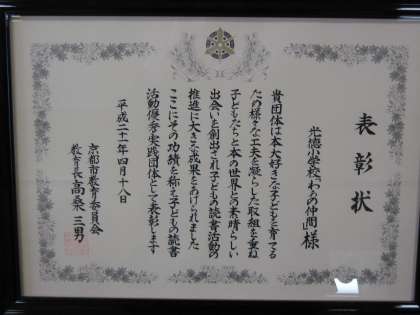 表彰状
光徳小学校「わぁの仲間」様
貴団体は本大好きな子どもを育てる
ため様々な工夫を凝らした取組を重ね
子どもたちと本の世界との素晴らしい
出会いを創出され子どもの読書活動の
推進に大きな成果をあげられました
ここにその功績を称え子どもの読書
活動優秀実践団体として表彰します
平成二十一年四月十八日
京都市教育委員会
教育長高桑三男